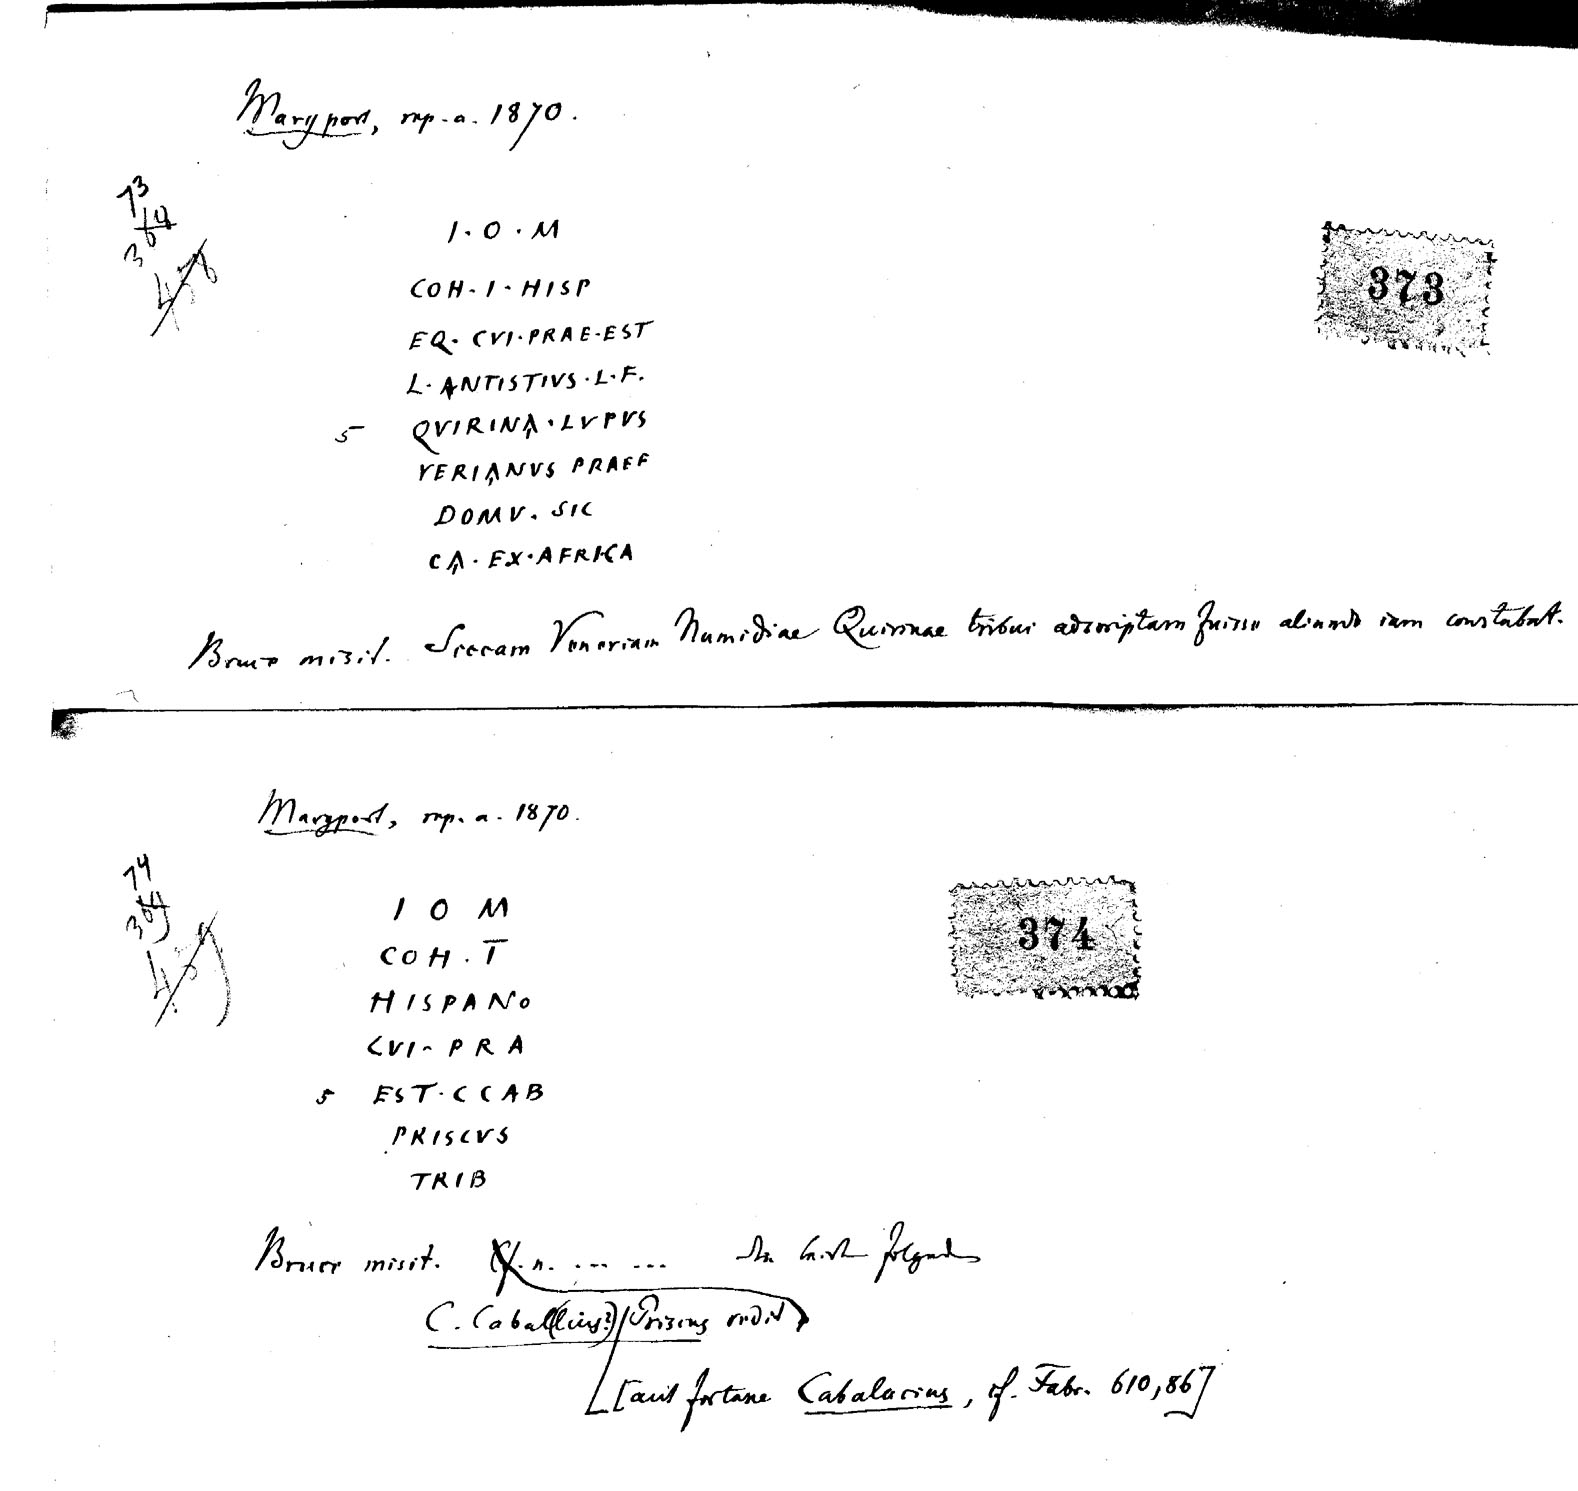 Maryport, rep. a. 1870.
73
364
458
373
I · O · M
COH · I · HISP
EQ · CVI · PRAE · EST
L · ANTISTIVS · L · F ·
5 QVIRINA · LVPVS
VERIANVS PRAEF
DOMV · SIC
CA · EX · AFRICA
Bruce misit. Siccam Veneriam Numidiae Quirinae tribui adscriptam fuisse aliunde iam constabat.
Maryport, rep. a. 1870.
74
374
I O M
COH · I
HISPANO
CVI · PRA
5 EST · C CAB
PRISCVS
TRIB
Bruce misit. Cf. n. ... ...
C. Cabal(lius?) Priscus redit
[aut fortasse Cabalarius, cf. Fabr. 610,86]